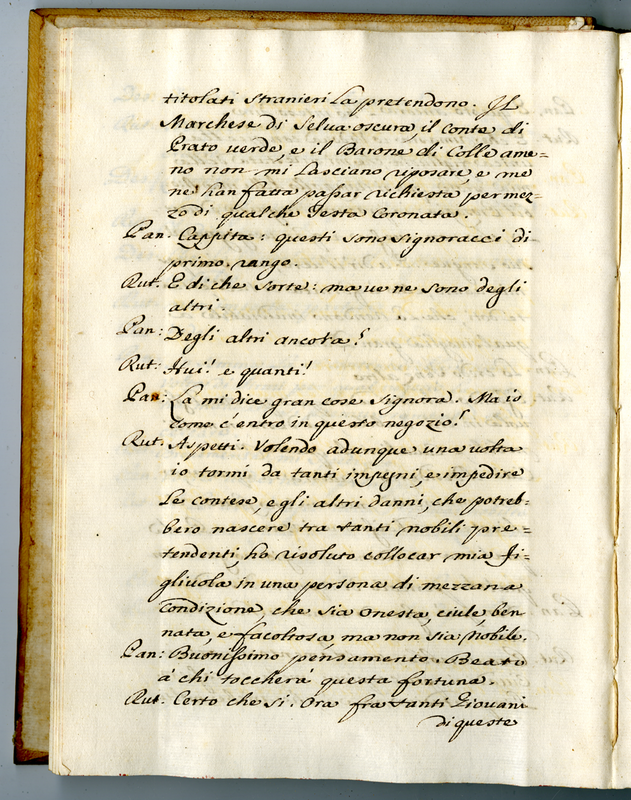 titolati stranieri La pretendono. Il
Marchese di Selva oscura, il conte di
Prato verde, e il Barone di Colle ame=
no non mi Lasciano riposare, e me
ne han fatta passar richiesta per mez=
zo di qualche Testa Coronata.
Pan. Cappita: questi sono Signoracci di
primo rango.
Rut. E di che sorte: ma ve ne sono degli
altri.
Pan: Degli altri ancora?
Rut: Hui! e quanti!
Pan: La mi dice gran cose Signora. Ma io
come c'entro in questo negozio?
Rut. Aspetti. Volendo adunque una volta
io tormi da tanti impegni, e impedire
Le contese, e gli altri danni, che potreb=
bero nascere tra tanti nobili pre=
tendenti, ho risoluto collocar mia fi=
gliuola in una persona di mezzana
condizione, che sia onesta, ciuile, ben
nata, e facoltosa, ma non sia Nobile.
Pan: Buonissimo pensamento. Beato
à chi toccherà questa fortuna.
Rut. Certo che si. Ora fra tanti Giovani
di queste